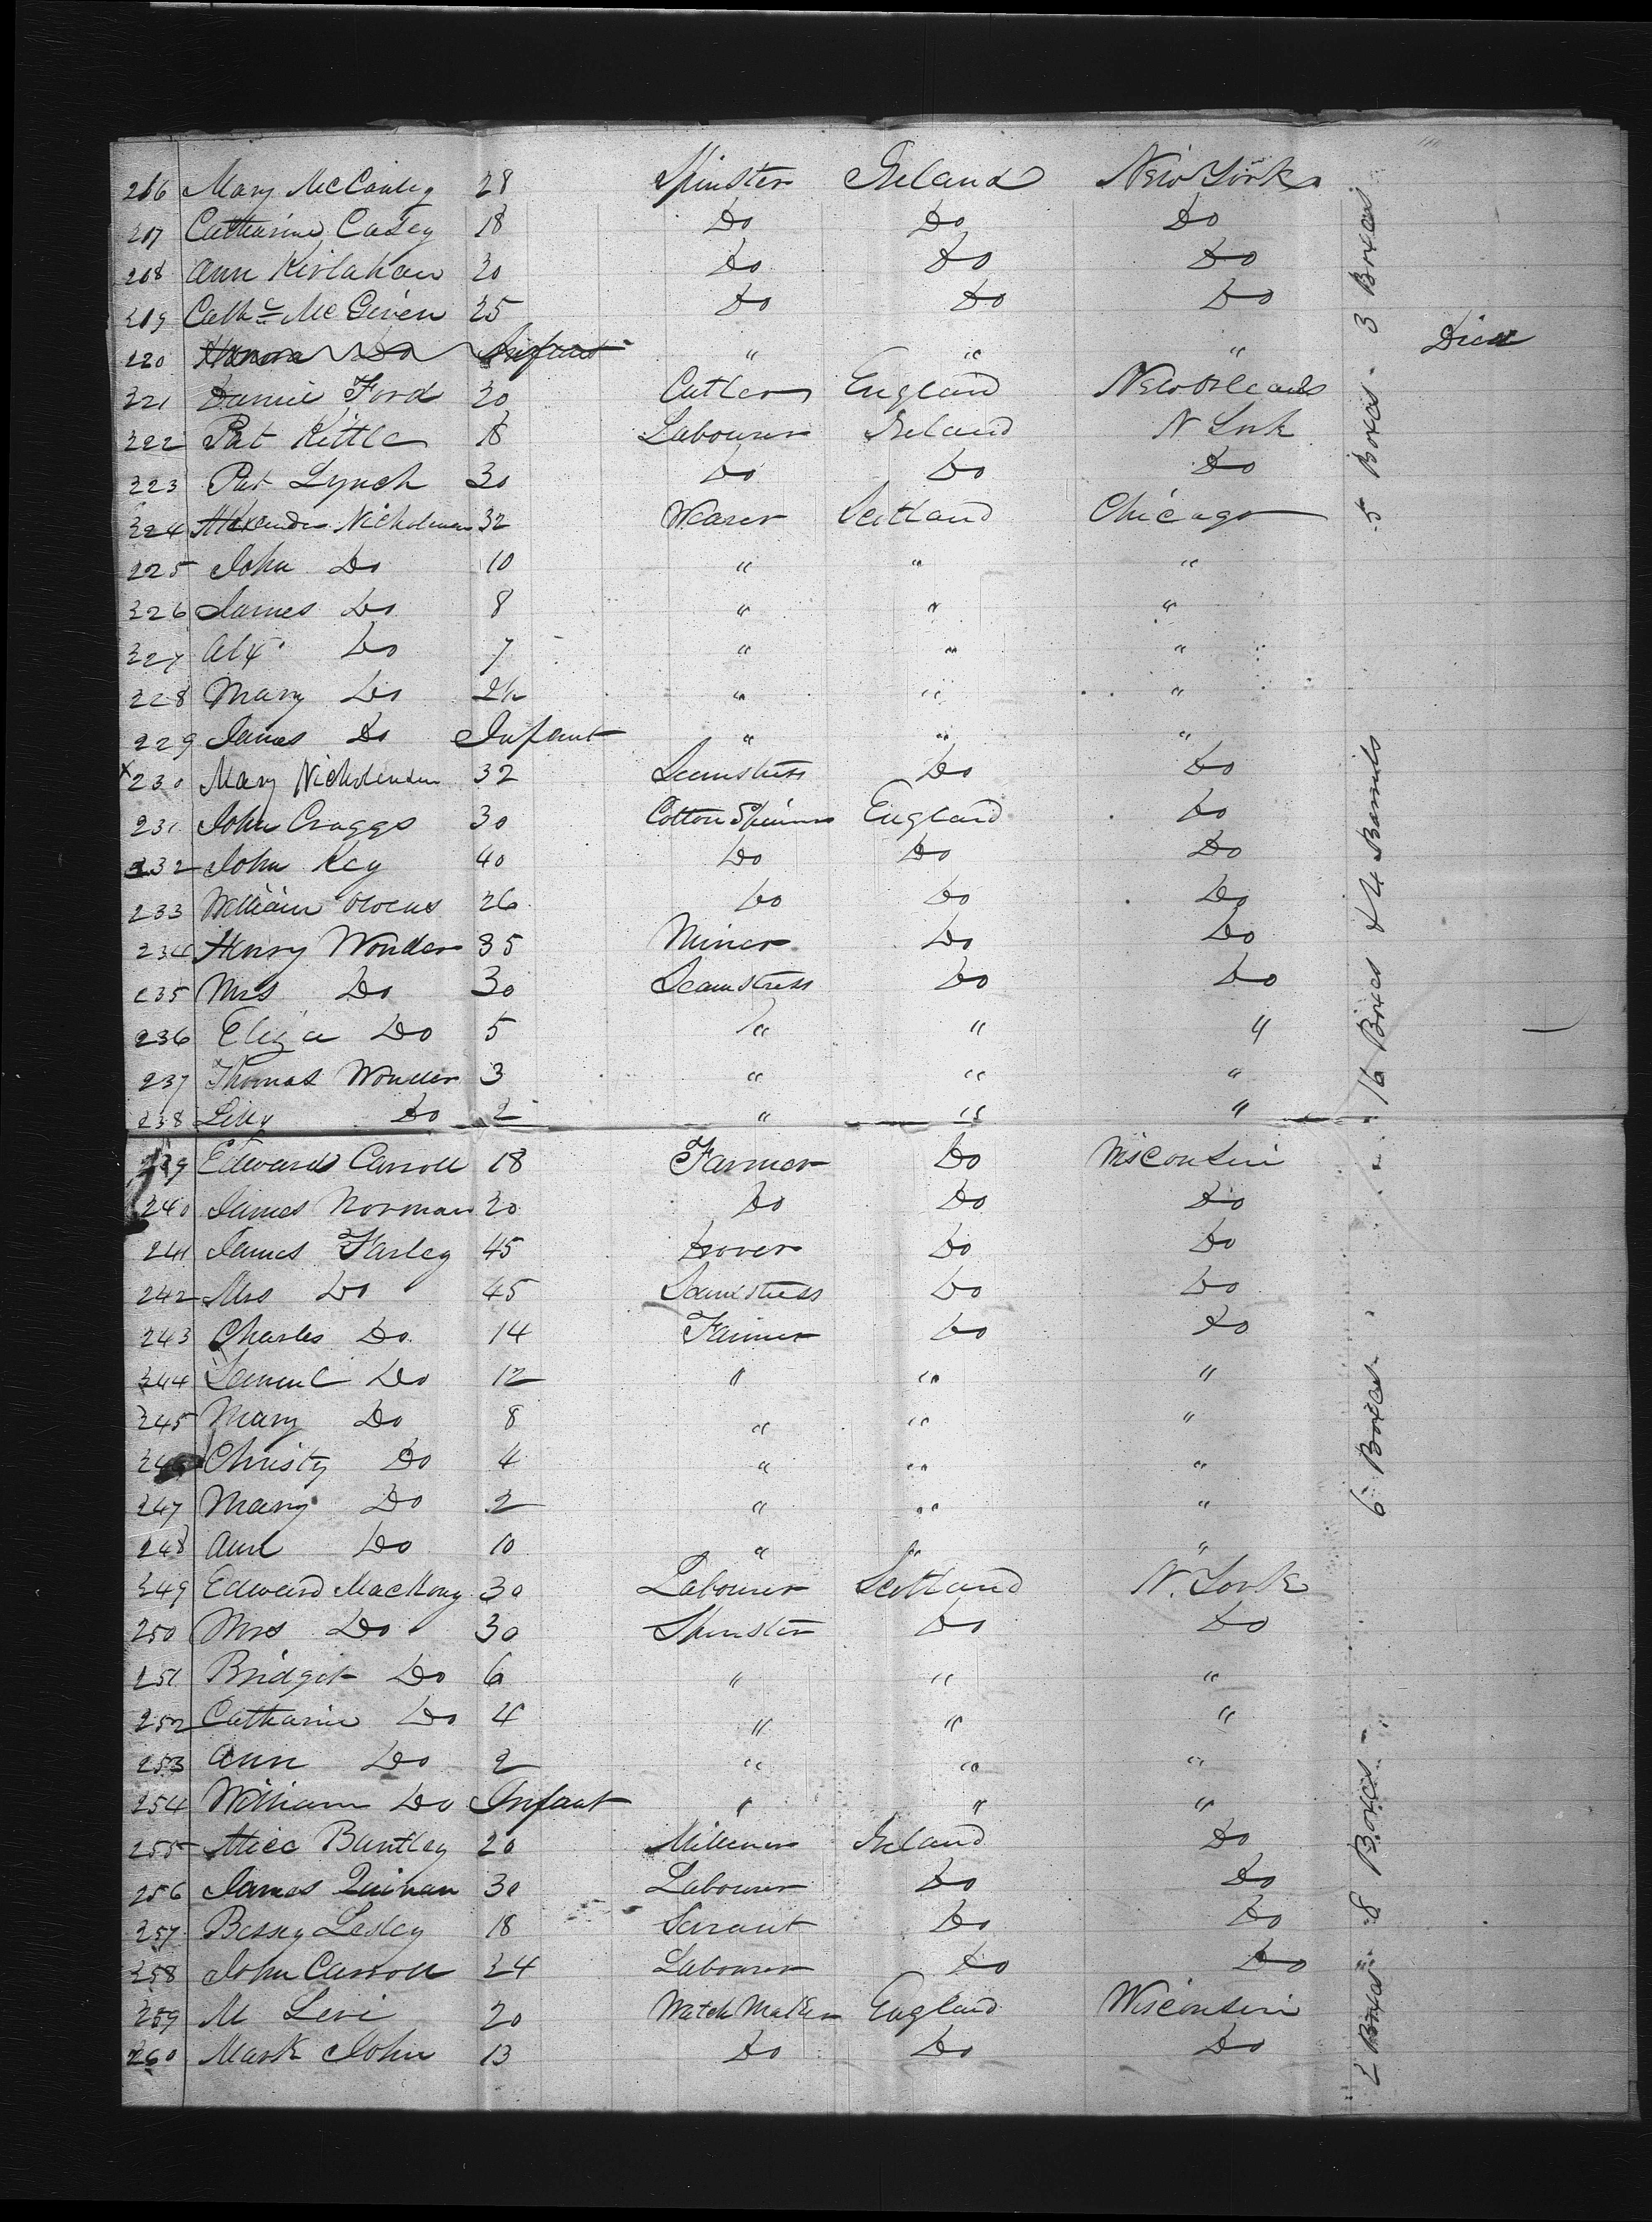 216 Mary McCauley 28 Spinster Ireland New York
217 Catharine Casey 18 Do Do Do
218 Ann Kirlahan 20 Do Do Do
219 Cathe McGiven 25 Do Do Do
220 Honora Do Infant " " " Died
221 Daniel Ford 20 Cutler England New Orleans
222 Pat Kittle 18 Labourer Ireland N York
223 Pat Lynch 30 Do Do Do
224 Alexander Nicholson 32 Weaver Scotland Chicago
225 John Do 10 " " "
226 James Do 8 " " "
227 Alx Do 7 " " "
228 Mary Do " " "
229 Do Infant " " "
x 230 Mary Nicholson 32 Seamstress Do Do
231 John Craggs 30 Cotton Spinner England Do
232 John Key 40 Do Do Do
233 William Owens 26 Do Do Do
234 Henry Wonder 35 Miner Do Do
235 Mrs Do 30 Seamstress Do Do
236 Eliza Do 5 " " "
237 Thomas Wonder 3 " " "
238 Do 2 " " "
239 Edward Carroll 18 Farmer Do Wisconsin
240 James Norman 20 Do Do Do
241 James Farley 45 Drover Do Do
242 Mrs Do 45 Seamstress Do Do
243 Charles Do 14 Farmer Do Do
244 Samuel Do 12 " " "
245 Mary Do 8 " " "
246 Christy Do 4 " " "
247 Mary Do 2 " " "
248 Ann Do 10 " " "
249 Edward Mackony 30 Labourer Scotland N. York
250 Mrs Do 30 Spinster Do Do
251 Bridget Do 6 " " "
252 Catharine Do 4 " " "
253 Ann Do 2 " " "
254 William Do Infant " " "
255 Alice Buntley 20 Milliner Ireland Do
256 James Quinan 30 Labourer Do Do
257 Bessy Lesley 18 Servant Do Do
258 John Carroll 24 Labourer Do Do
259 M Levi 20 Watch Maker England Wisconsin
260 Mark John 13 Do Do Do
2 Boxes 8 Boxes 6 Boxes 16 Boxes & 4 Barrels 5 Boxes 3 Boxes